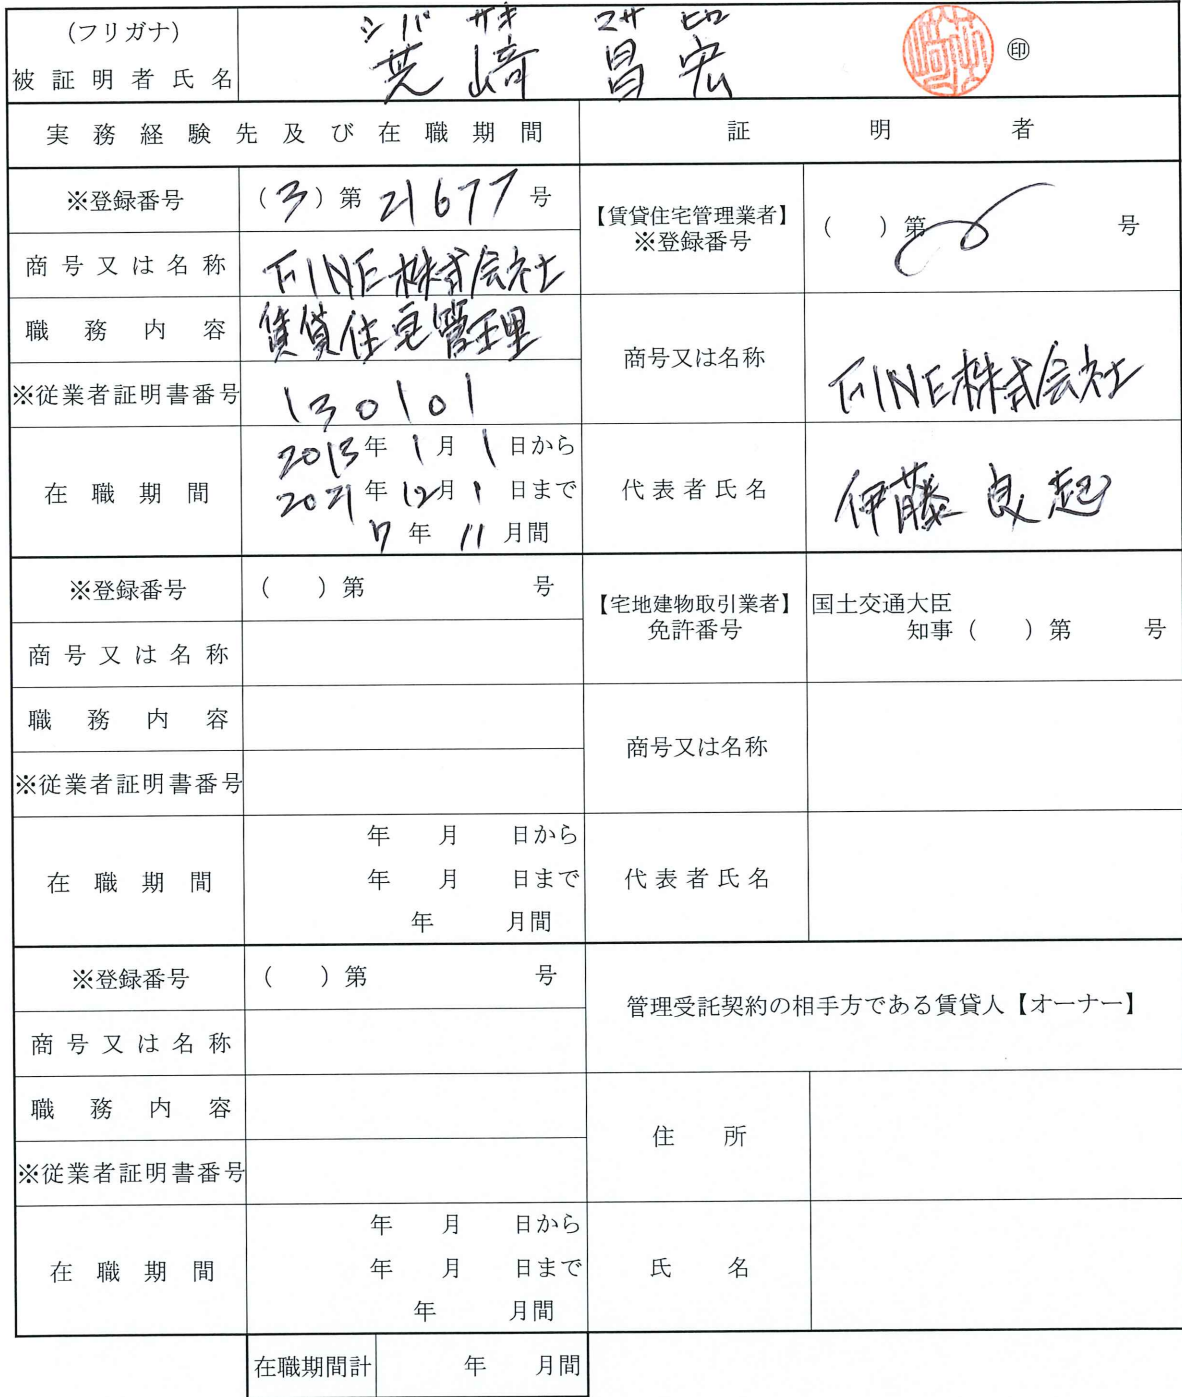 (フリガナ) シバ サキ マサ ヒロ
被証明者氏名 芝﨑 昌宏 ㊞
実務経験先及び在職期間 証明者
※登録番号 (3)第21677号
【賃貸住宅管理業者】
※登録番号 ( )第 号
商号又は名称 FINE株式会社
職務内容 賃貸住宅管理
商号又は名称 FINE株式会社
※従業者証明書番号 130101
在職期間
2013年1月1日から
2021年12月1日まで
7年11月間
代表者氏名 伊藤良起
※登録番号 ( )第 号
【宅地建物取引業者】
免許番号
国土交通大臣
知事( )第 号
商号又は名称
職務内容
商号又は名称
※従業者証明書番号
在職期間
年 月 日から
年 月 日まで
年 月間
代表者氏名
※登録番号 ( )第 号
管理受託契約の相手方である賃貸人【オーナー】
商号又は名称
職務内容
住所
※従業者証明書番号
在職期間
年 月 日から
年 月 日まで
年 月間
氏名
在職期間計 年 月間